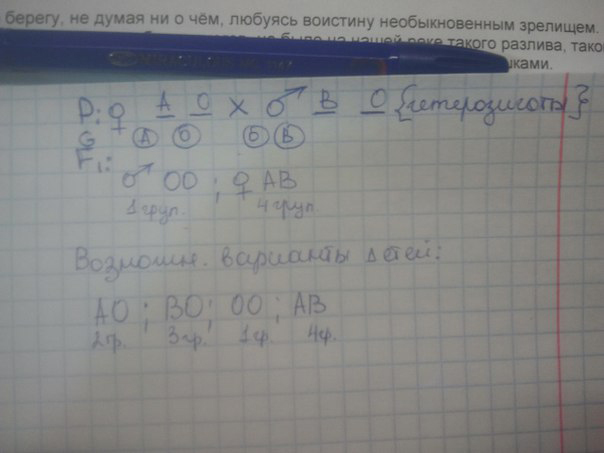 берегу, не думая ни о чём, любуясь воистину необыкновенным зрелищем.
было на нашей реке такого разлива,
P: ♀ A O × ♂ B O {гетерозиготы}
G (A) (O) (O) (B)
F₁:
♂ OO ; ♀ AB
1 груп. 4 груп
Возможн. варианты детей:
AO ; BO ; OO ; AB
2гр. 3гр. 1гр. 4гр.